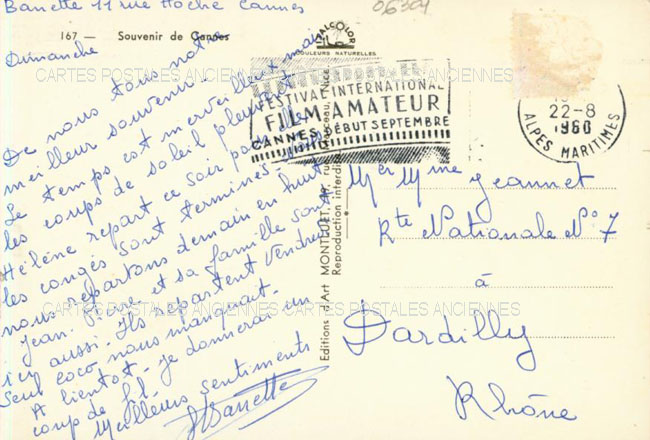 Banette 11 rue Hoche Cannes
06304
167 — Souvenir de Cannes
Dimanche
De nous tous notre
meilleur souvenir.
Le temps est merveilleux mais
les coups de soleil pleuvent
Hélène repart ce soir
les congés sont terminés
nous repartons demain en huit
Jean. Pierre et sa famille sont
ici aussi. Ils repartent Vendredi
Seul coco nous manquait.
A bientôt. je donnerai un
coup de fil.
Meilleurs sentiments
JBanette
COULEURS NATURELLES
FESTIVAL INTERNATIONAL
FILM AMATEUR
CANNES DÉBUT SEPTEMBRE
22-8
1960
ALPES MARITIMES
Editions d'Art MONTLUET, rue Marceau, Nice
Reproduction interdite
Mer Mme Jeannet
Rte Nationale N° 7
à
Dardilly
Rhône
CARTES POSTALES ANCIENNES CARTES POSTALES ANCIENNES
CARTES POSTALES ANCIENNES CARTES POSTALES ANCIENNES